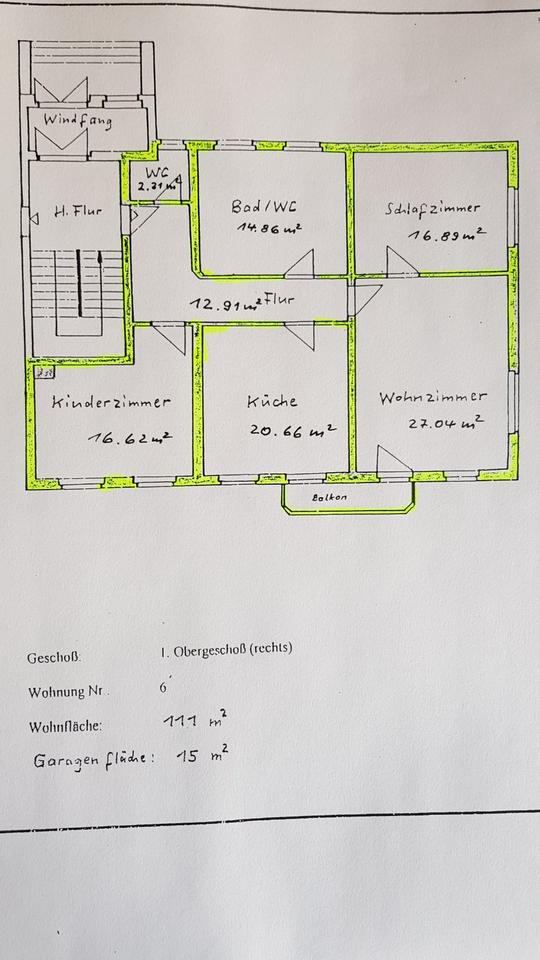 Windfang
WC
2.31 m²
H. Flur
Bad/WC
14.86 m²
Schlafzimmer
16.89 m²
12.91 m² Flur
Kinderzimmer
16.62 m²
Küche
20.66 m²
Wohnzimmer
27.04 m²
Balkon
Geschoß: 1. Obergeschoß (rechts)
Wohnung Nr. 6
Wohnfläche: 111 m²
Garagenfläche: 15 m²